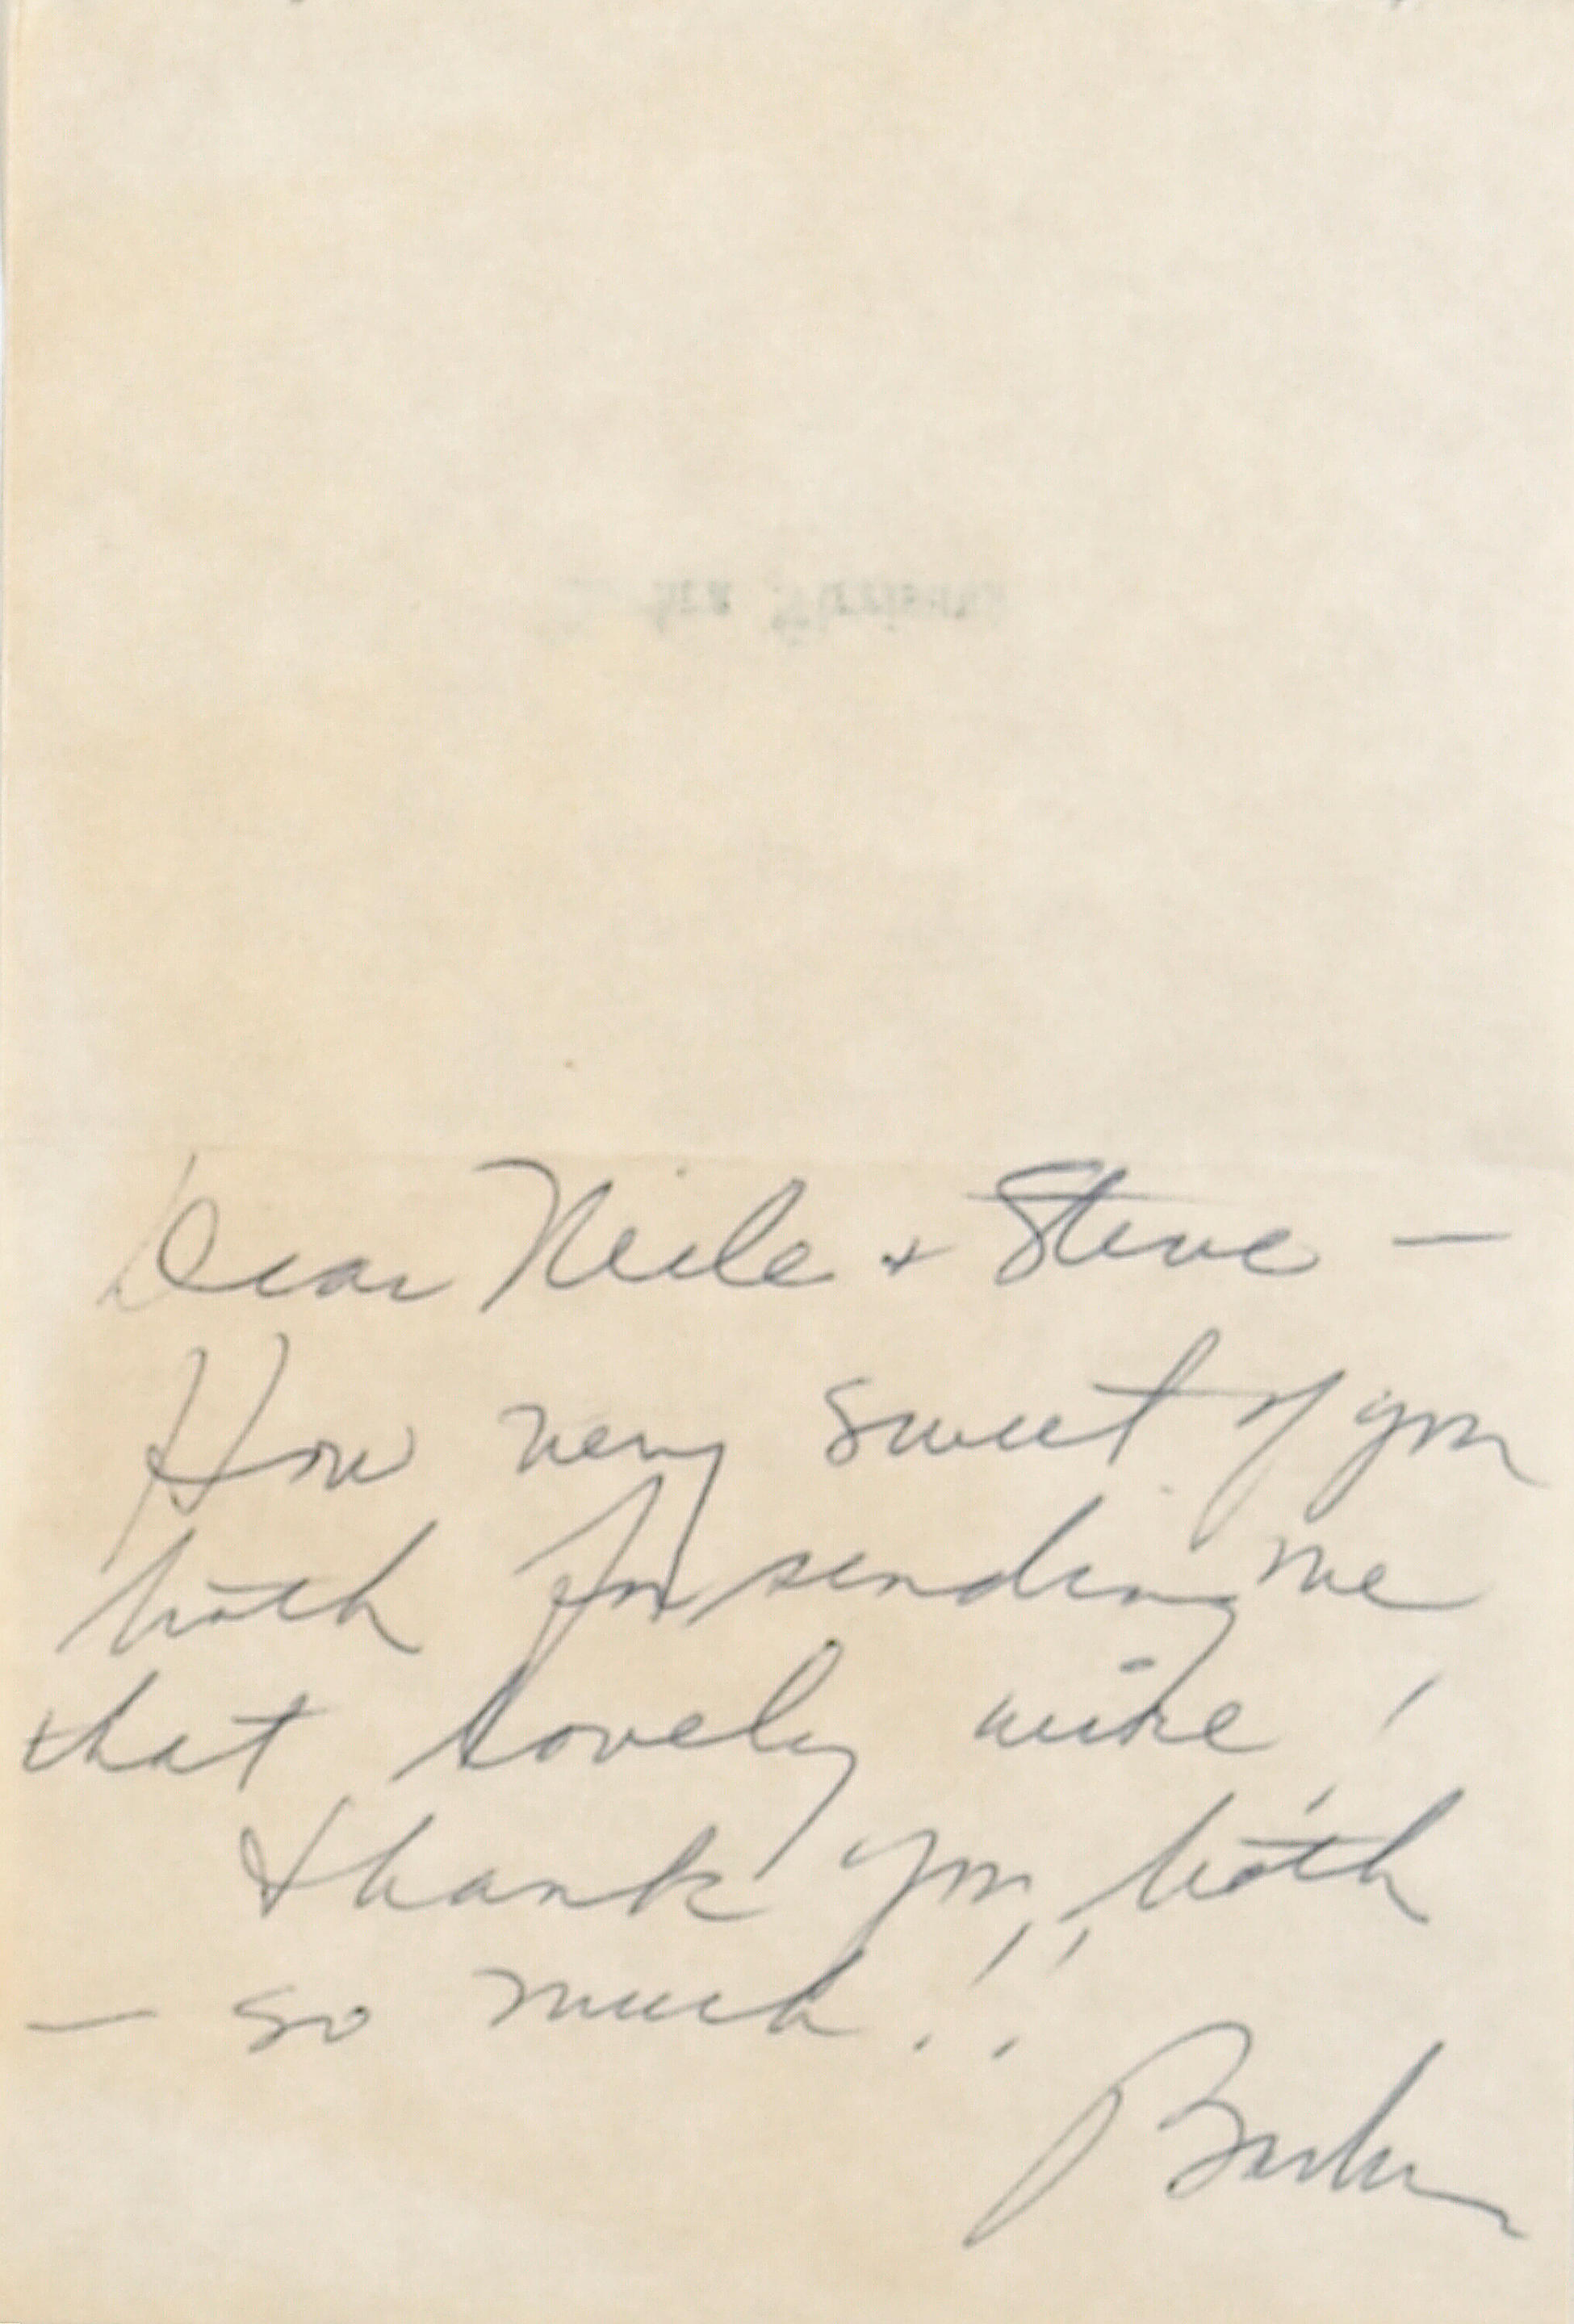 Dear Neile + Steve —
How very sweet of you
both for sending me
that lovely wine!
Thank you, both
— so much!!